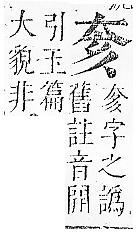 奒字之譌
舊註音開
引玉篇
大貌非